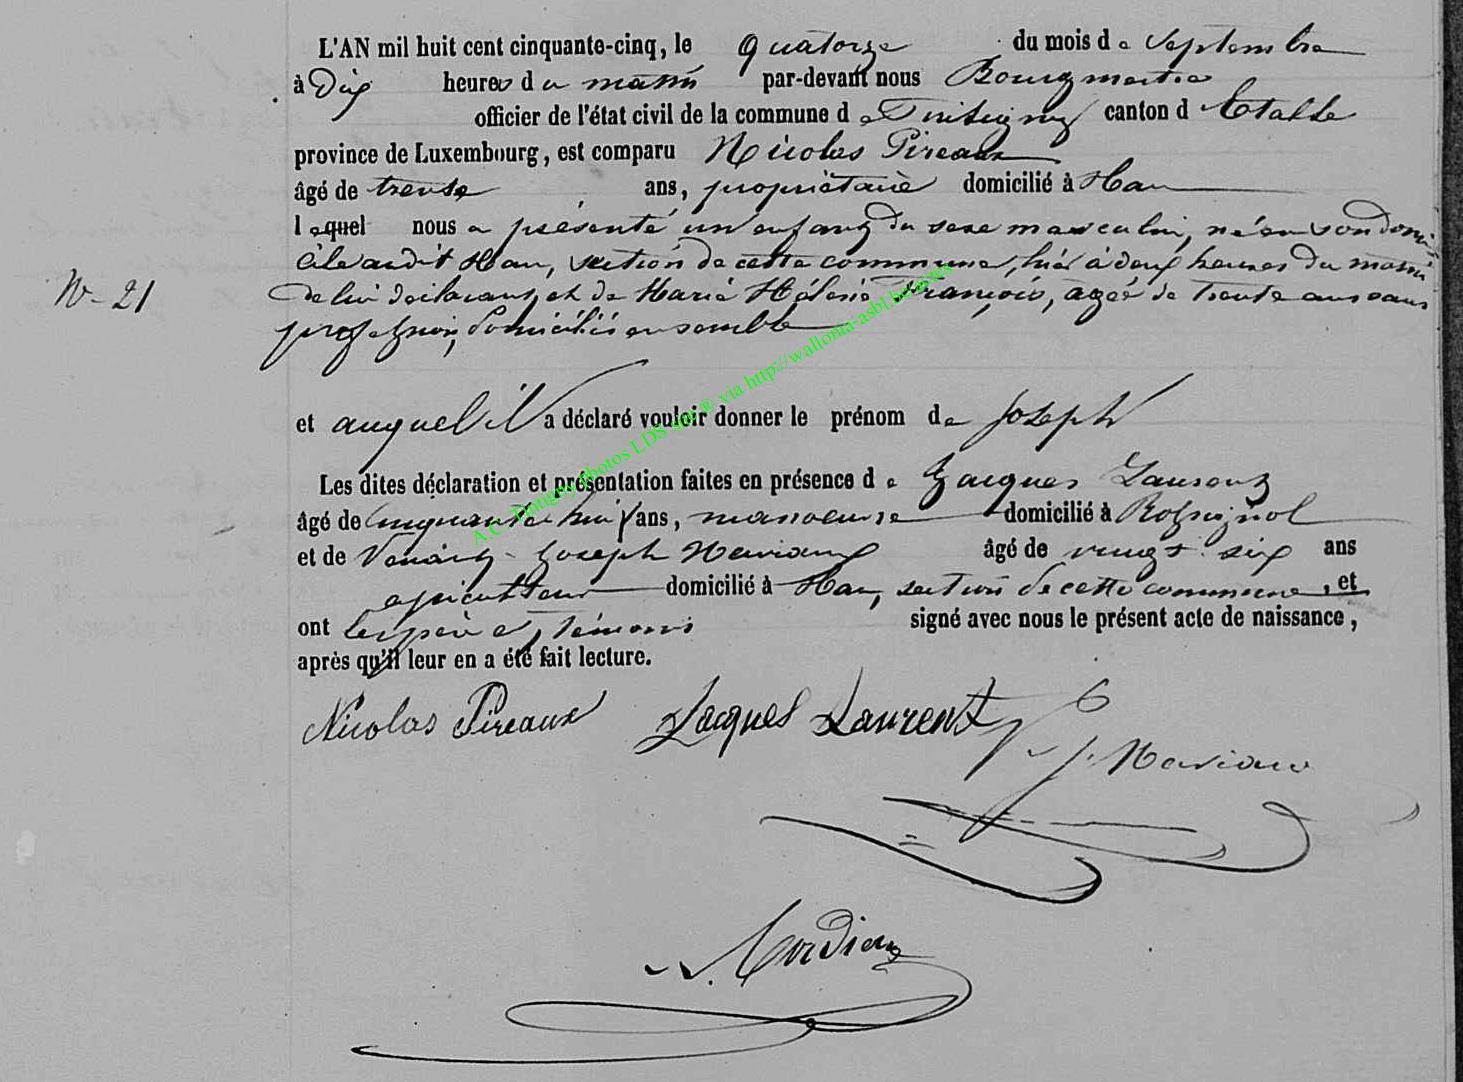 L'AN mil huit cent cinquante-cinq, le quatorze du mois de septembre
à Dix heures du matin par-devant nous Bourgmestre
officier de l'état civil de la commune de Tintigny canton d Etalle
province de Luxembourg, est comparu Nicolas Pireaux
âgé de trente ans, propriétaire domicilié à Han
lequel nous a présenté un enfant du sexe masculin, né en son domi
cile audit Han, section de cette commune, hier à deux heures du matin
N° 21
de lui déclarant et de Marie Hélène François, agée de trente ans sans
profession, domiciliés ensemble
et auquel il a déclaré vouloir donner le prénom de Joseph
Les dites déclaration et présentation faites en présence de Jacques Laurent
âgé de cinquante huit ans, manoeuvre domicilié à Rossignol
et de Joseph âgé de vingt six ans
domicilié à Han, section de cette commune, et
ont les père et témoins signé avec nous le présent acte de naissance,
après qu'il leur en a été fait lecture.
Nicolas Pireaux Jacques Laurent
A.C. Tintigny photos LDS via http://wallonia-asbl.be